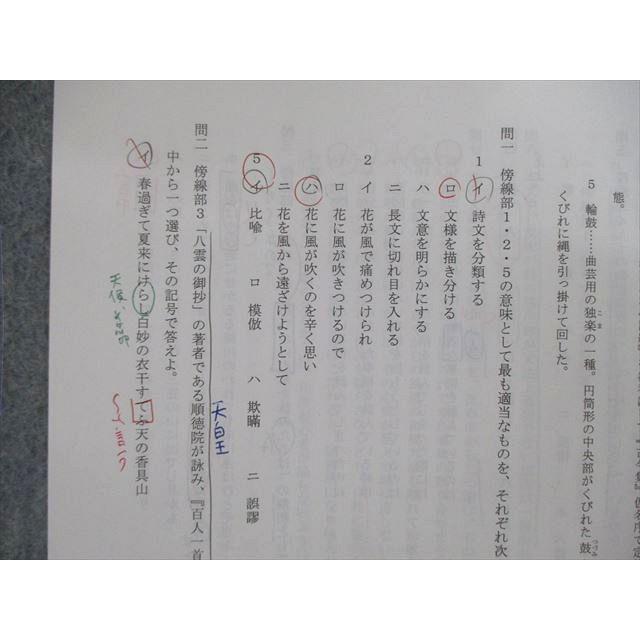 態。
5 輪鼓……曲芸用の独楽の一種。円筒形の中央部がくびれた鼓
こま
つづみ
くびれに縄を引っ掛けて回した。
問一 傍線部1・2・5の意味として最も適当なものを、それぞれ次
1 イ 詩文を分類する
ロ 文様を描き分ける
ハ 文意を明らかにする
ニ 長文に切れ目を入れる
2 イ 花が風で痛めつけられ
ロ 花に風が吹きつけるので
ハ 花に風が吹くのを辛く思い
ニ 花を風から遠ざけようとして
5 イ 比喩 ロ 模倣 ハ 欺瞞 ニ 誤謬
天皇
問二 傍線部3「八雲の御抄」の著者である順徳院が詠み、『百人一首
中から一つ選び、その記号で答えよ。
イ 春過ぎて夏来にけらし白妙の衣干すてふ天の香具山